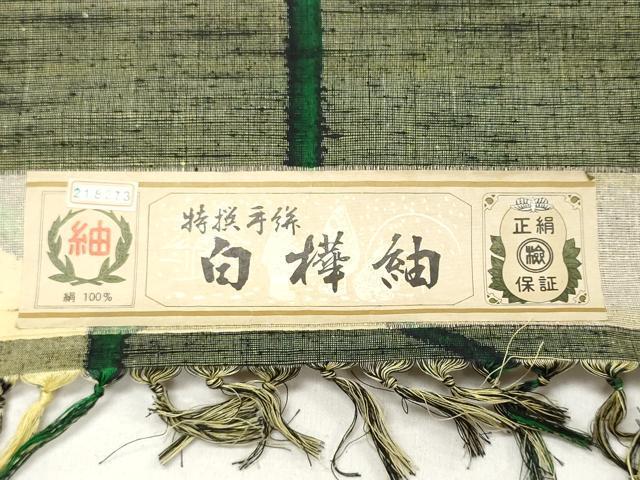 21.8273
紬
絹 100%
特撰手絣
白樺紬
正絹
検
保証